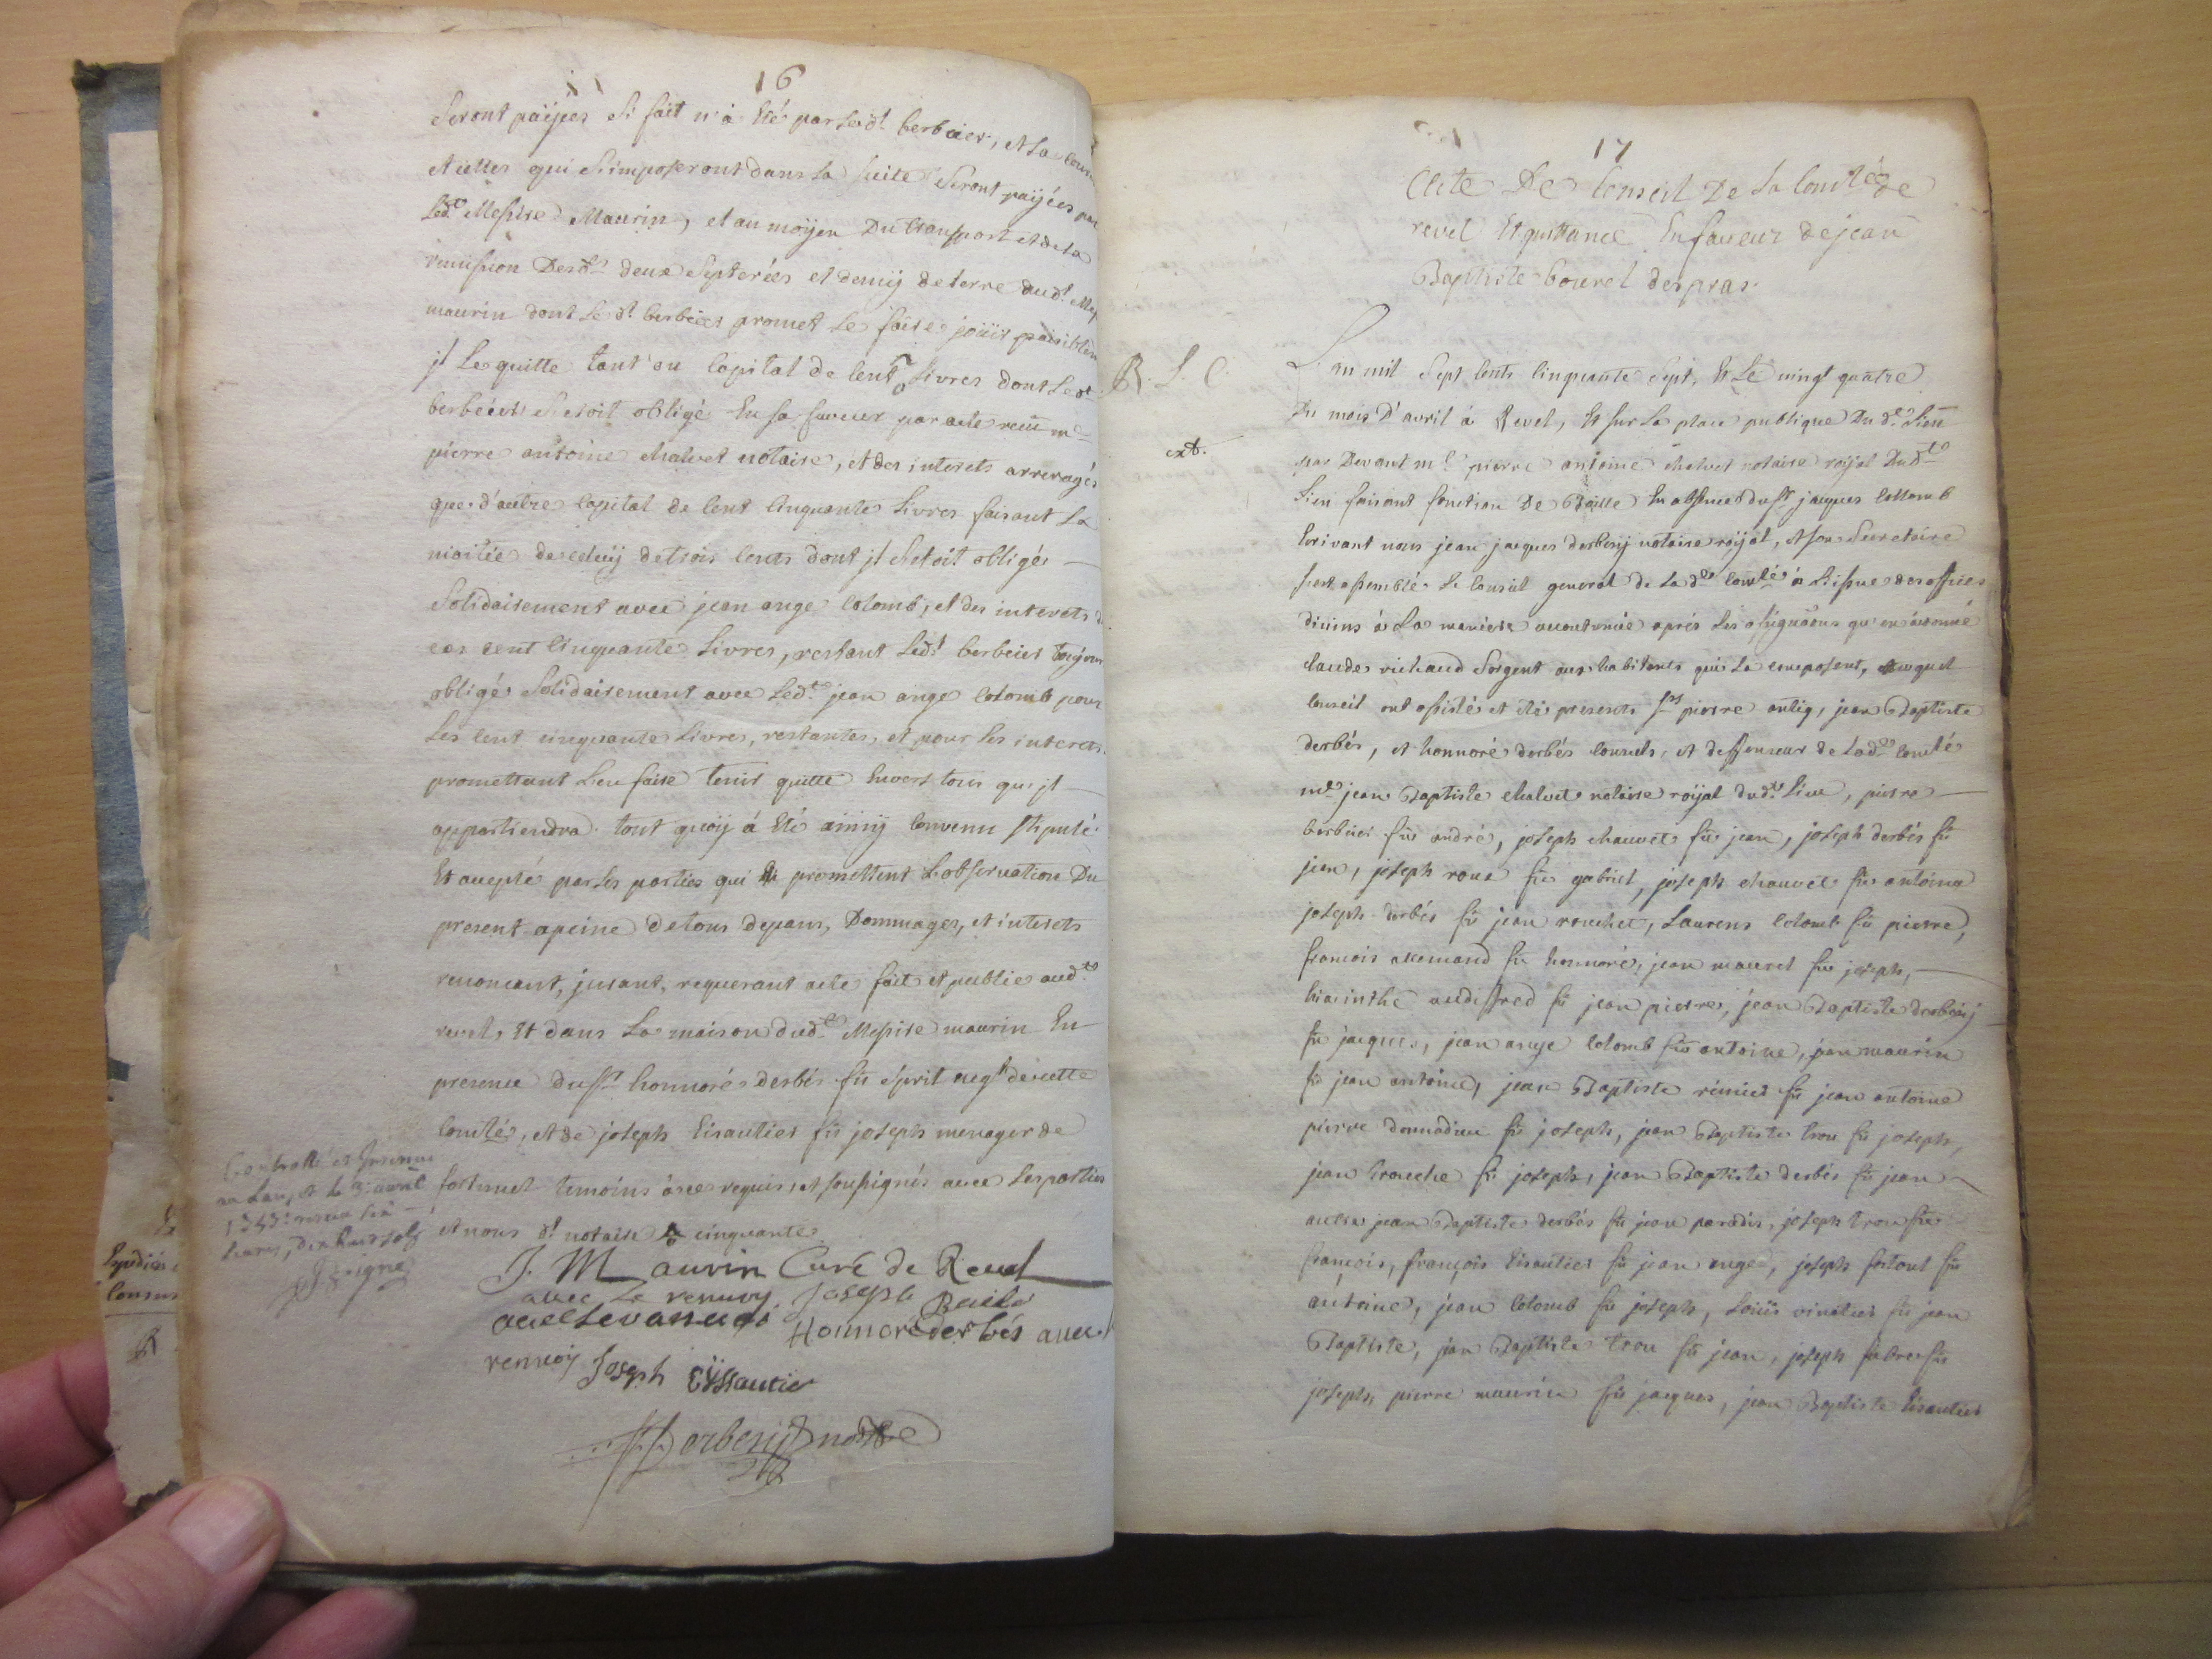 16
Seront païjées Si fait n'a Eté par Led.t berbeier, et la
et celles qui S'imposeront dans la Suite Seront païjées par
Led.t Messire Maurin, et au moÿen Du transport et de la
remission Desd.s deux Septerées et demij de terre dud.t
maurin dont Le d.t berbeier promet Le faire joüir paisiblem
jl Le quitte tant du Capital de Cent Livres dont Led.t
berbeier S'etoit obligé En sa faveur par acte reçu m.e
pierre antoine chalvet notaire, et des interets arreragés
que d'autre Capital de Cent Cinquante Livres faisant La
moitiée de celuij de trois Cents dont jl S'etoit obligé
Solidairement avec jean ange Colomb, et des interets d
ces cent Cinquante Livres, restant Led.t berbeier toujour
obligé Solidairement avec Led.t jean ange Colomb pour
Les Cent cinquante Livres, restantes, et pour les interets
promettant L'en faire tenir quitte Envers tous qu'jl
appartiendra. tout quoÿ á Eté ainsij Convenu stipulé
Et accepté par les parties qui promettent L'observation Du
present apeine de tous depans, Dommages, et interets
renoncant, jurant, requerant acte fait et publié aud.t
revel, Et dans La maison dud.t Messire maurin En
presence du s.r honnoré derbés fû ésprit neg.t de cette
Com.té, et de joseph Eisautier fû joseph menager de
fortunet temoins á ce requis, et soussignés avec Les parties
et nous d.t notaire cinquante
Controllé et Insinué
au Lauzet le 3: avril
J. Maurin Curé de Revel
avec Le renvoy Joseph
Honnoré derbés avec
renvoÿ Joseph Eÿssautier
Derbesij not.re
17
Acte De Conseil De la Com.té de
revel Et quittance En faveur de jean
Baptiste bourel des pras.
R. L. C.
L'an mil Sept Cents Cinquante Sept, Et Le vingt quatre
Du mois D'avril á Revel, Et sur La place publique Dud.t Lieu
ext.
par Devant m.e pierre antoine chalvet notaire roÿal Dud.t
Lieu faisant fonction De Baille En absence du s.r jacques Collomb
Ecrivant nous jean jacques derbesij notaire roijal, et son Secretaire
s'est assemblé Le Conseil general de La d.te Com.té á L'issue des offices
divins á La maniere accoutumée aprés Les assignãons qu'en á donné
claude richaud Sergent aux habitants qui La composent, auquel
Conseil ont assisté et été presents s.rs pierre antig, jean Baptiste
derbés, et honnoré derbés Consuls, et deffenseur de Lad.te Com.té
m.e jean Baptiste chalvet notaire roijal dud.t Lieu, pierre
berbeier fû andré, joseph chauvet fû jean, joseph derbés fû
jean, joseph roux fû gabriel, joseph chauvet fû antoine
joseph derbés fû jean rouchet, Laurens Colomb fû pierre,
francois allemand fû honnoré, jean maurel fû joseph,
hiacinthe audiffred fû jean pierre, jean Baptiste derbesij
fû jacques, jean ange Colomb fû antoine, jean maurin
fû jean antoine, jean Baptiste rémuet fû jean antoine
pierre donnadieu fû joseph, jean Baptiste trou fû joseph,
jean trouche fû joseph, jean Baptiste derbés fû jean
autre jean Baptiste derbés fû jean paradis, joseph trou fû
françois, françois Eisautier fû jean ange, joseph fortoul fû
antoine, jean Colomb fû joseph, Loüis vinatier fû jean
Baptiste, jean Baptiste trou fû jean, joseph fabre fû
joseph, pierre maurin fû jacques, jean Baptiste Eisautier